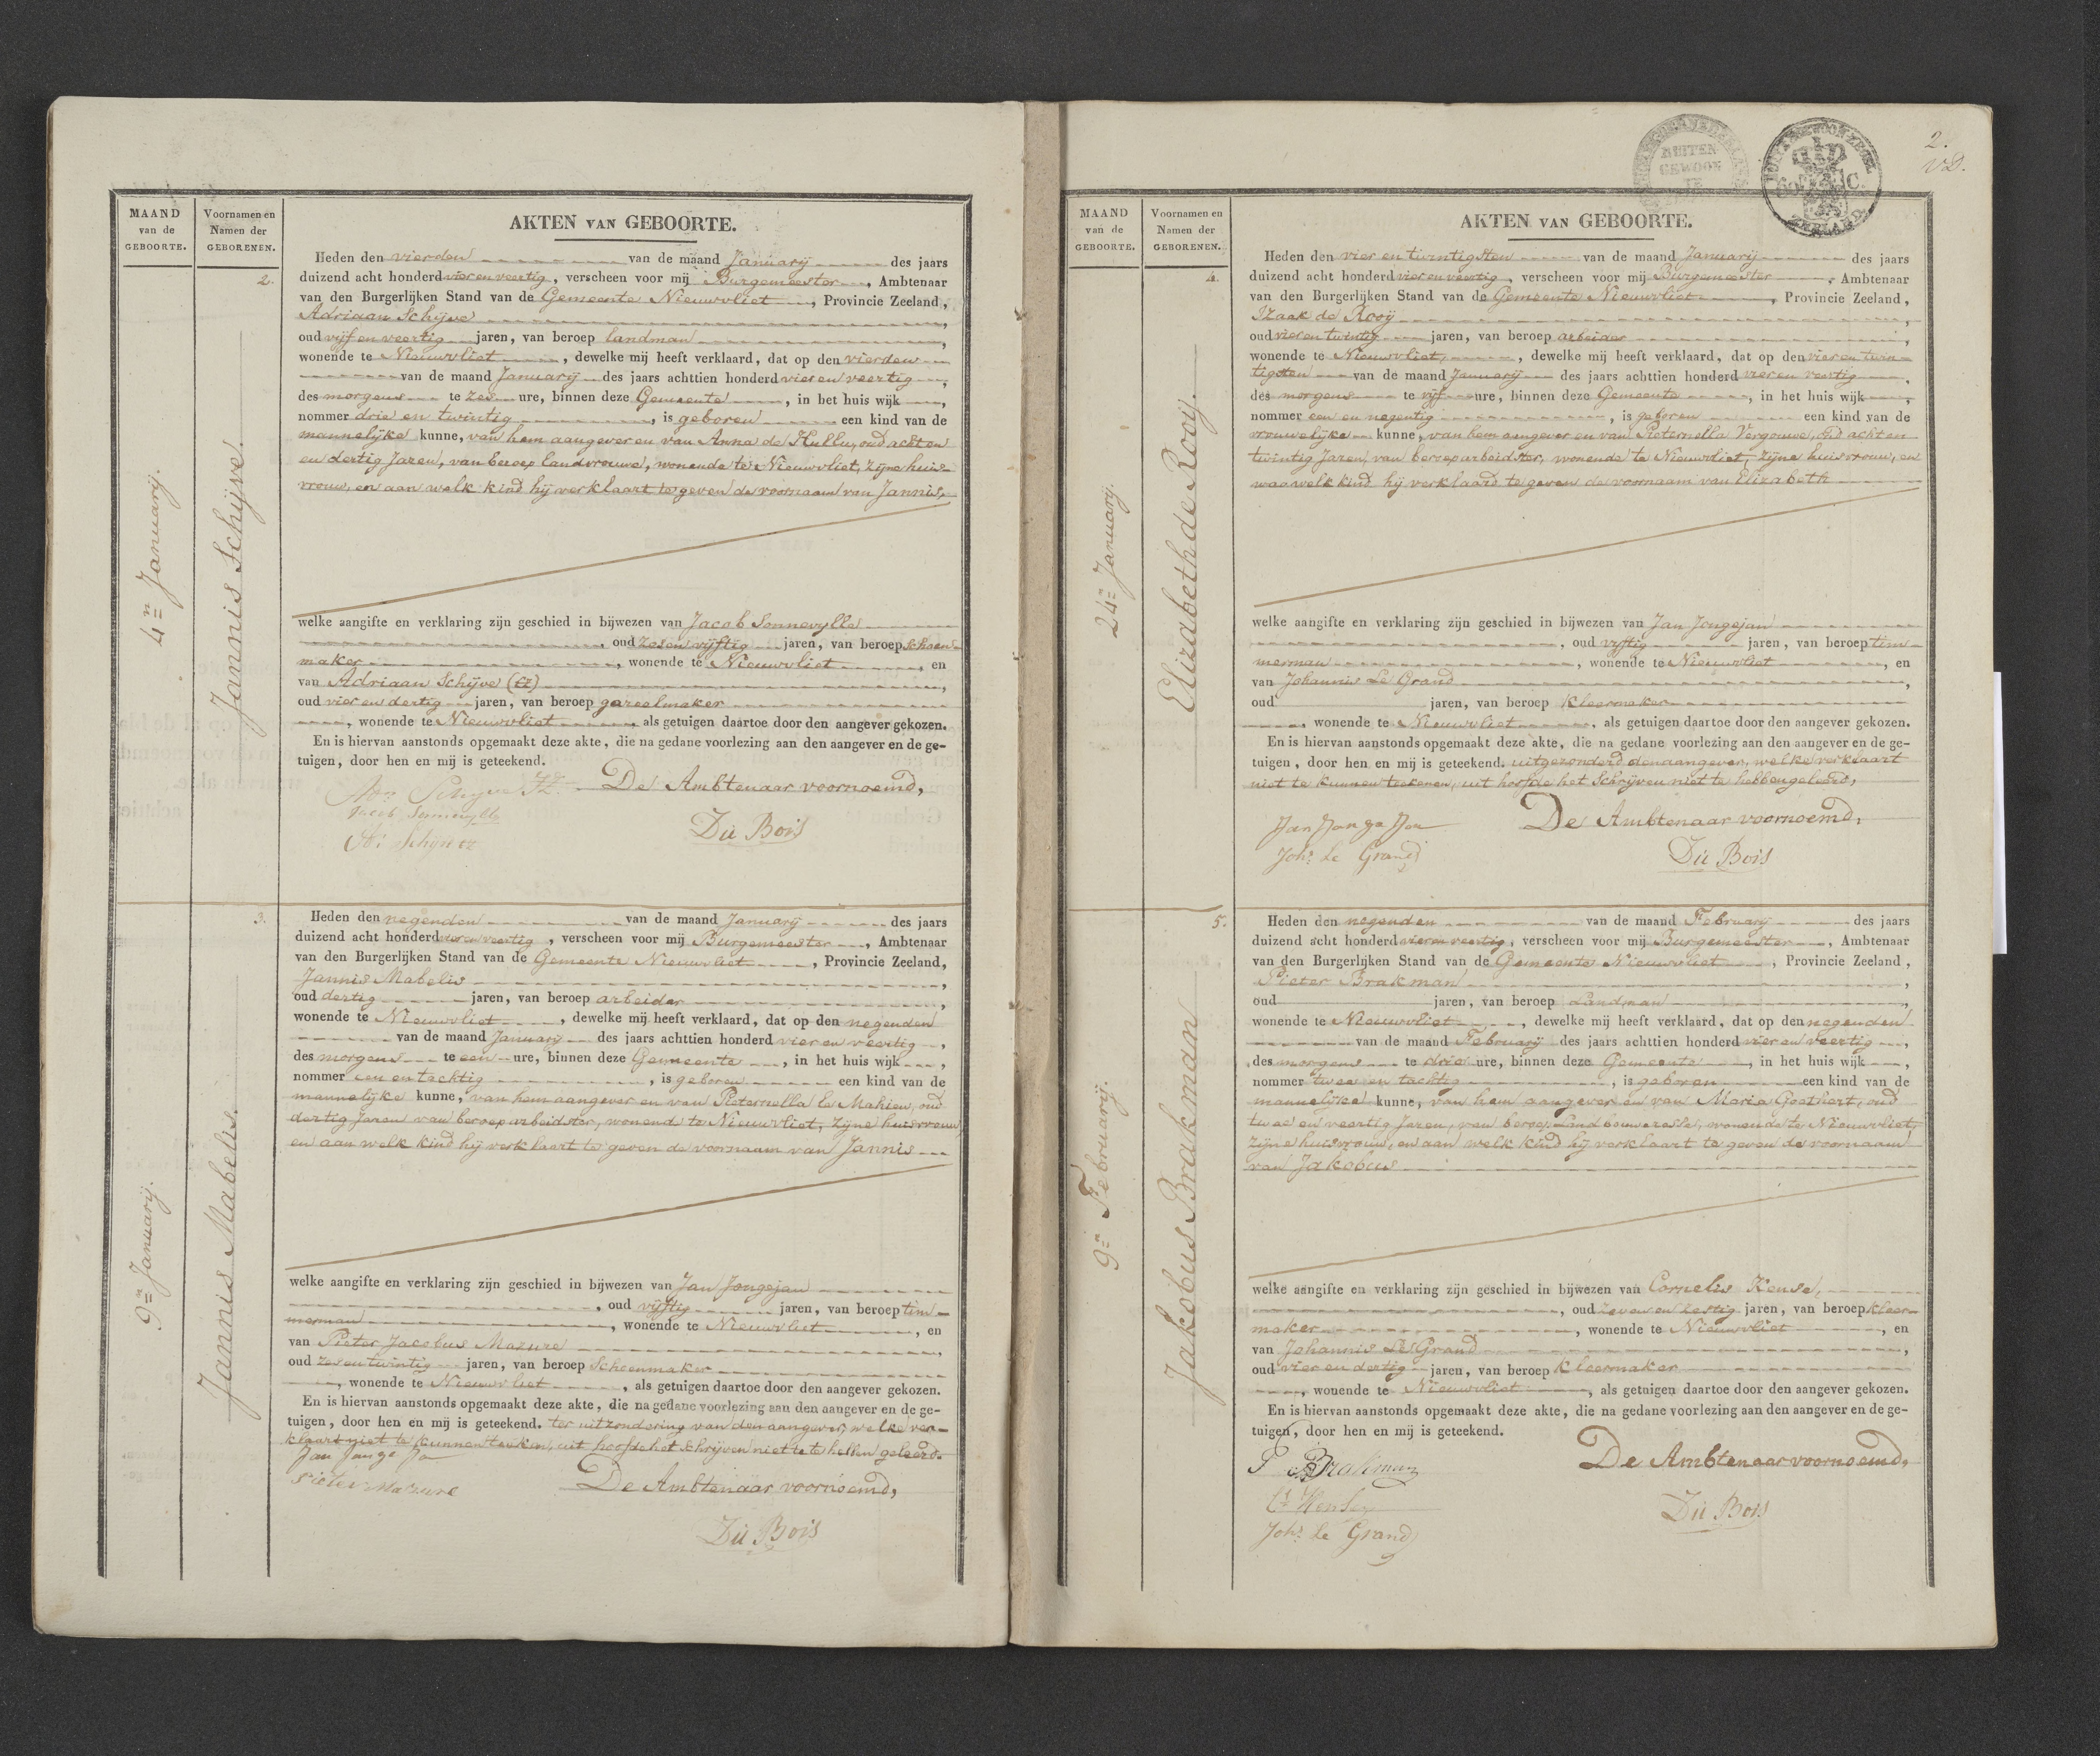 MAAND
van de
GEBOORTE.
Voornamen en
Namen der
GEBORENEN.
AKTEN VAN GEBOORTE.
4n Januarij.
Jannis Schijve.
2.
Heden den vierden van de maand Januarij des jaars
duizend acht honderd vier en veertig, verscheen voor mij Burgemeester, Ambtenaar
van den Burgerlijken Stand van de Gemeente Nieuwvliet, Provincie Zeeland,
Adriaan Schijve,
oud vijf en veertig jaren, van beroep landman,
wonende te Nieuwvliet, dewelke mij heeft verklaard, dat op den vierden
van de maand Januarij des jaars achttien honderd vier en veertig,
des morgens te zes ure, binnen deze Gemeente, in het huis wijk,
nommer drie en twintig, is geboren een kind van de
mannelijke kunne, van hem aangever en van Anna de Hullu, oud acht en
en dertig Jaren, van beroep landvrouwe, wonende te Nieuwvliet, zijne huis-
vrouw, en aan welk kind hij verklaart te geven de voornaam van Jannis.
welke aangifte en verklaring zijn geschied in bijwezen van Jacob Sonnevylle
, oud zes en vijftig jaren, van beroep schoen-
maker, wonende te Nieuwvliet, en
van Adriaan Schijve (tz),
oud vier en dertig jaren, van beroep gareelmaker
, wonende te Nieuwvliet, als getuigen daartoe door den aangever gekozen.
En is hiervan aanstonds opgemaakt deze akte, die na gedane voorlezing aan den aangever en de ge-
tuigen, door hen en mij is geteekend.
De Ambtenaar voornoemd,
Jacob Sonnevylle
Du Bois
9n Januarij.
Jannis Mabelis.
3.
Heden den negenden van de maand Januarij des jaars
duizend acht honderd vier en veertig, verscheen voor mij Burgemeester, Ambtenaar
van den Burgerlijken Stand van de Gemeente Nieuwvliet, Provincie Zeeland,
Jannis Mabelis,
oud dertig jaren, van beroep arbeider,
wonende te Nieuwvliet, dewelke mij heeft verklaard, dat op den negenden
van de maand Januarij des jaars achttien honderd vier en veertig,
des morgens te een ure, binnen deze Gemeente, in het huis wijk,
nommer een en tachtig, is geboren een kind van de
mannelijke kunne, van hem aangever en van Pieternella le Mahieu, oud
dertig Jaren van beroep arbeidster, wonend te Nieuwvliet, zijne huisvrouw
en aan welk kind hij verklaart te geven de voornaam van Jannis
welke aangifte en verklaring zijn geschied in bijwezen van Jan Jongejan
, oud vijftig jaren, van beroep tim-
merman, wonende te Nieuwvliet, en
van Pieter Jacobus Mazure,
oud zes en twintig jaren, van beroep Schoenmaker
, wonende te Nieuwvliet, als getuigen daartoe door den aangever gekozen.
En is hiervan aanstonds opgemaakt deze akte, die na gedane voorlezing aan den aangever en de ge-
tuigen, door hen en mij is geteekend. ter uitzondering van den aangever, welke ver-
klaart niet te kunnen teeken, uit hoofde het schrijven niet te hebben geleerd.
Jan Jonge Jan
Pieter Mazure
De Ambtenaar voornoemd,
Du Bois
2.
VD.
BUITEN
GEWOON
60 C.
ZEELAND
MAAND
van de
GEBOORTE.
Voornamen en
Namen der
GEBORENEN.
AKTEN VAN GEBOORTE.
24n Januarij.
Elizabeth de Rooij.
4.
Heden den vier en twintigsten van de maand Januarij des jaars
duizend acht honderd vier en veertig, verscheen voor mij Burgemeester, Ambtenaar
van den Burgerlijken Stand van de Gemeente Nieuwvliet, Provincie Zeeland,
Izaak de Rooij,
oud vier en twintig jaren, van beroep arbeider,
wonende te Nieuwvliet, dewelke mij heeft verklaard, dat op den vier en twin-
tigsten van de maand Januarij des jaars achttien honderd vier en veertig,
des morgens te vijf ure, binnen deze Gemeente, in het huis wijk,
nommer een en negentig, is geboren een kind van de
vrouwelijke kunne, van hem aangever en van Pieternella Vergouwe, oud acht en
twintig Jaren, van beroep arbeidster, wonende te Nieuwvliet, zijne huisvrouw, en
waarwelk kind hij verklaard te geven de voornaam van Elizabeth
welke aangifte en verklaring zijn geschied in bijwezen van Jan Jongejan
, oud vijftig jaren, van beroep tim-
merman, wonende te Nieuwvliet, en
van Johannis Le Grand,
oud jaren, van beroep Kleermaker
, wonende te Nieuwvliet, als getuigen daartoe door den aangever gekozen.
En is hiervan aanstonds opgemaakt deze akte, die na gedane voorlezing aan den aangever en de ge-
tuigen, door hen en mij is geteekend. uitgezonderd den aangever, welke verklaart
niet te kunnen teekenen, uit hoofde het Schrijven niet te hebben geleerd,
Jan Jonge Jan
De Ambtenaar voornoemd,
Johs Le Grand
Du Bois
9n Februarij.
Jakobus Brakman
5.
Heden den negenden van de maand Februarij des jaars
duizend acht honderd vier en veertig, verscheen voor mij Burgemeester, Ambtenaar
van den Burgerlijken Stand van de Gemeente Nieuwvliet, Provincie Zeeland,
Pieter Brakman,
oud jaren, van beroep Landman,
wonende te Nieuwvliet, dewelke mij heeft verklaard, dat op den negenden
van de maand Februarij des jaars achttien honderd vier en veertig,
des morgens te drie ure, binnen deze Gemeente, in het huis wijk,
nommer twee en tachtig, is geboren een kind van de
mannelijke kunne, van hem aangever en van Maria Goethert, oud
twee en veertig Jaren, van beroep Landbouweresse, wonende te Nieuwvliet,
zijne huisvrouw, en aan welk kind hij verklaart te geven de voornaam
van Jakobus
welke aangifte en verklaring zijn geschied in bijwezen van Cornelis Kense,
, oud zeven en zestig jaren, van beroep kleer-
maker, wonende te Nieuwvliet, en
van Johannis Le Grand,
oud vier en dertig jaren, van beroep Kleermaker
, wonende te Nieuwvliet, als getuigen daartoe door den aangever gekozen.
En is hiervan aanstonds opgemaakt deze akte, die na gedane voorlezing aan den aangever en de ge-
tuigen, door hen en mij is geteekend.
P Brakman
De Ambtenaar voornoemd,
Johs Le Grand
Du Bois